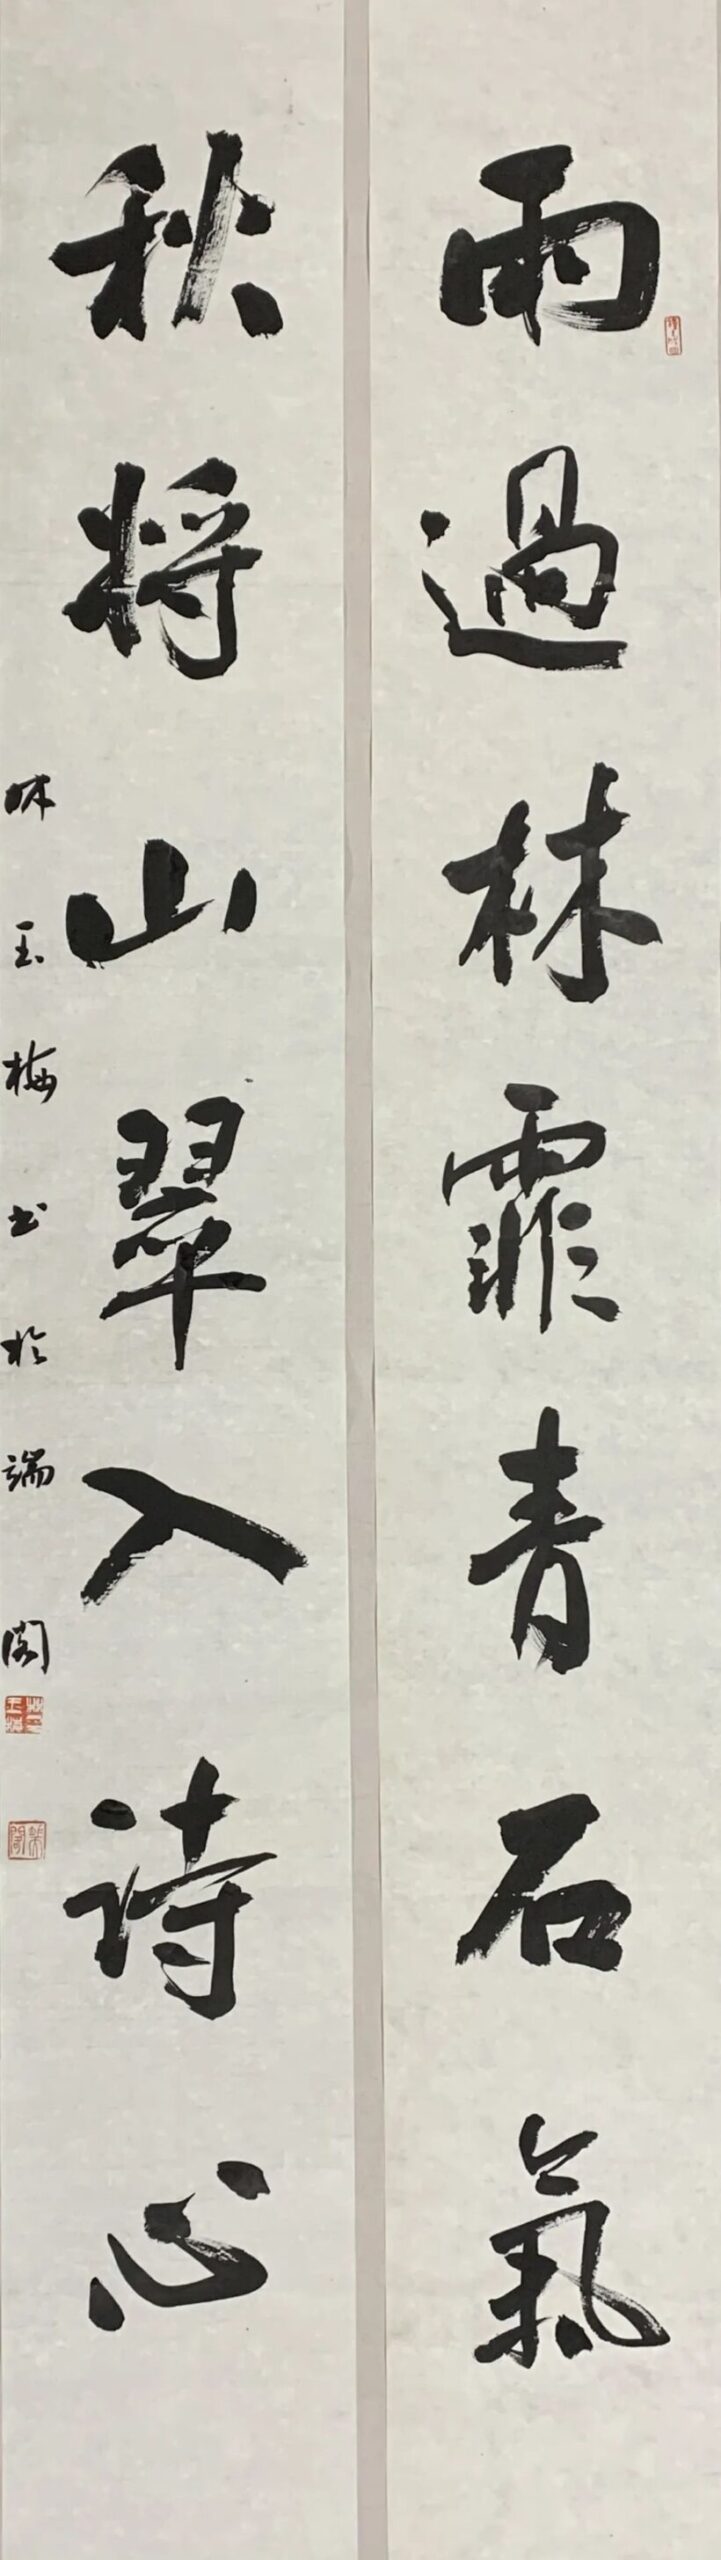 雨過林霏青石氣
秋將山翠入詩心
林玉梅书於端阁